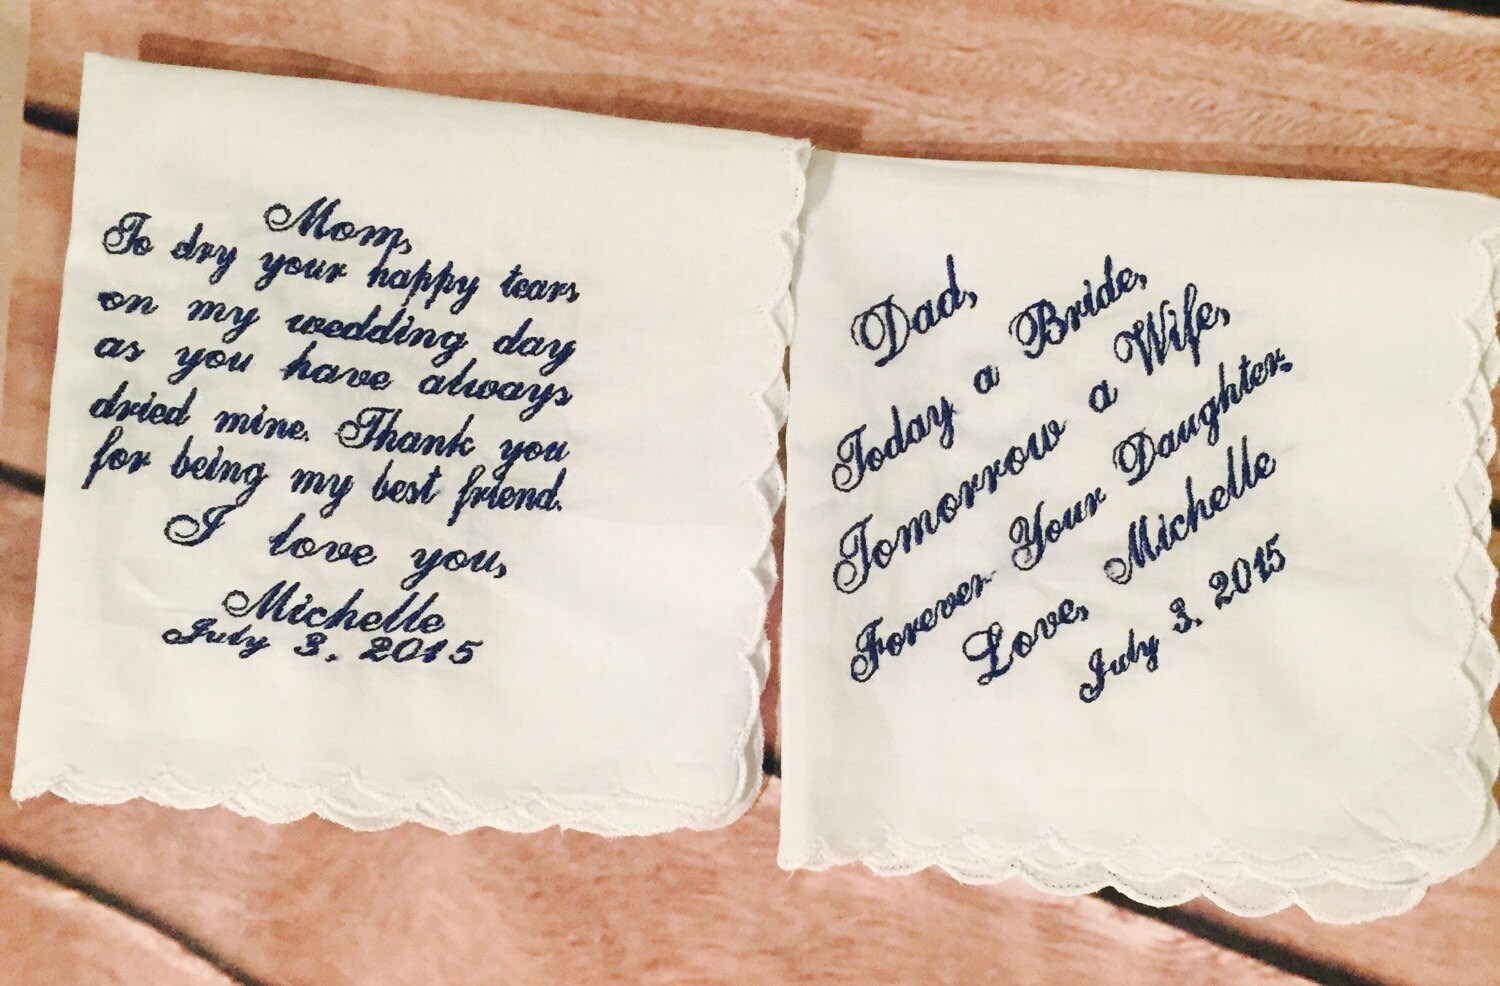 Mom,
To dry your happy tears
on my wedding day
as you have always
dried mine. Thank you
for being my best friend.
I love you,
Michelle
July 3, 2015
Dad,
Today a Bride,
Tomorrow a Wife,
Forever Your Daughter.
Love, Michelle
July 3, 2015